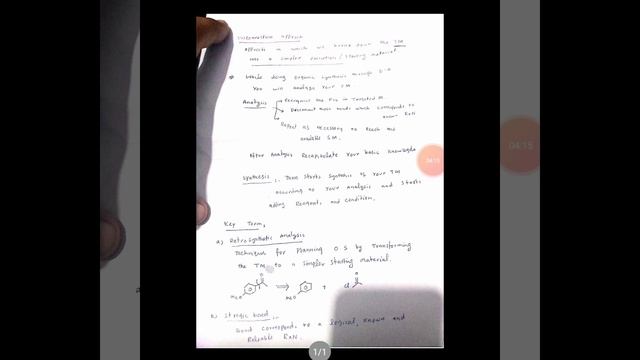 Disconnection Approach
Approach in which we break down the TM
into a simpler precursors / starting material
While doing organic synthesis through D-A
You will analyze your TM
Analysis → Recognize the F.G in Targeted M.
Disconnect those bonds which corresponds to
known RxN
Repeat as necessary to reach an
available SM.
After Analysis Recapitulate Your basic knowledge
Synthesis:- Then starts synthesis of your TM
according to your analysis and starts
adding Reagents and condition.
Key Term,
a) Retrosynthetic Analysis
Technique for Planning O.S by Transforming
the TM to a simpler starting material.
MeO
O
⇒
MeO
+
cl
O
b) Strategic bond :-
bond corresponds to a logical, known and
Reliable RxN.
04:15
04:15
1/1